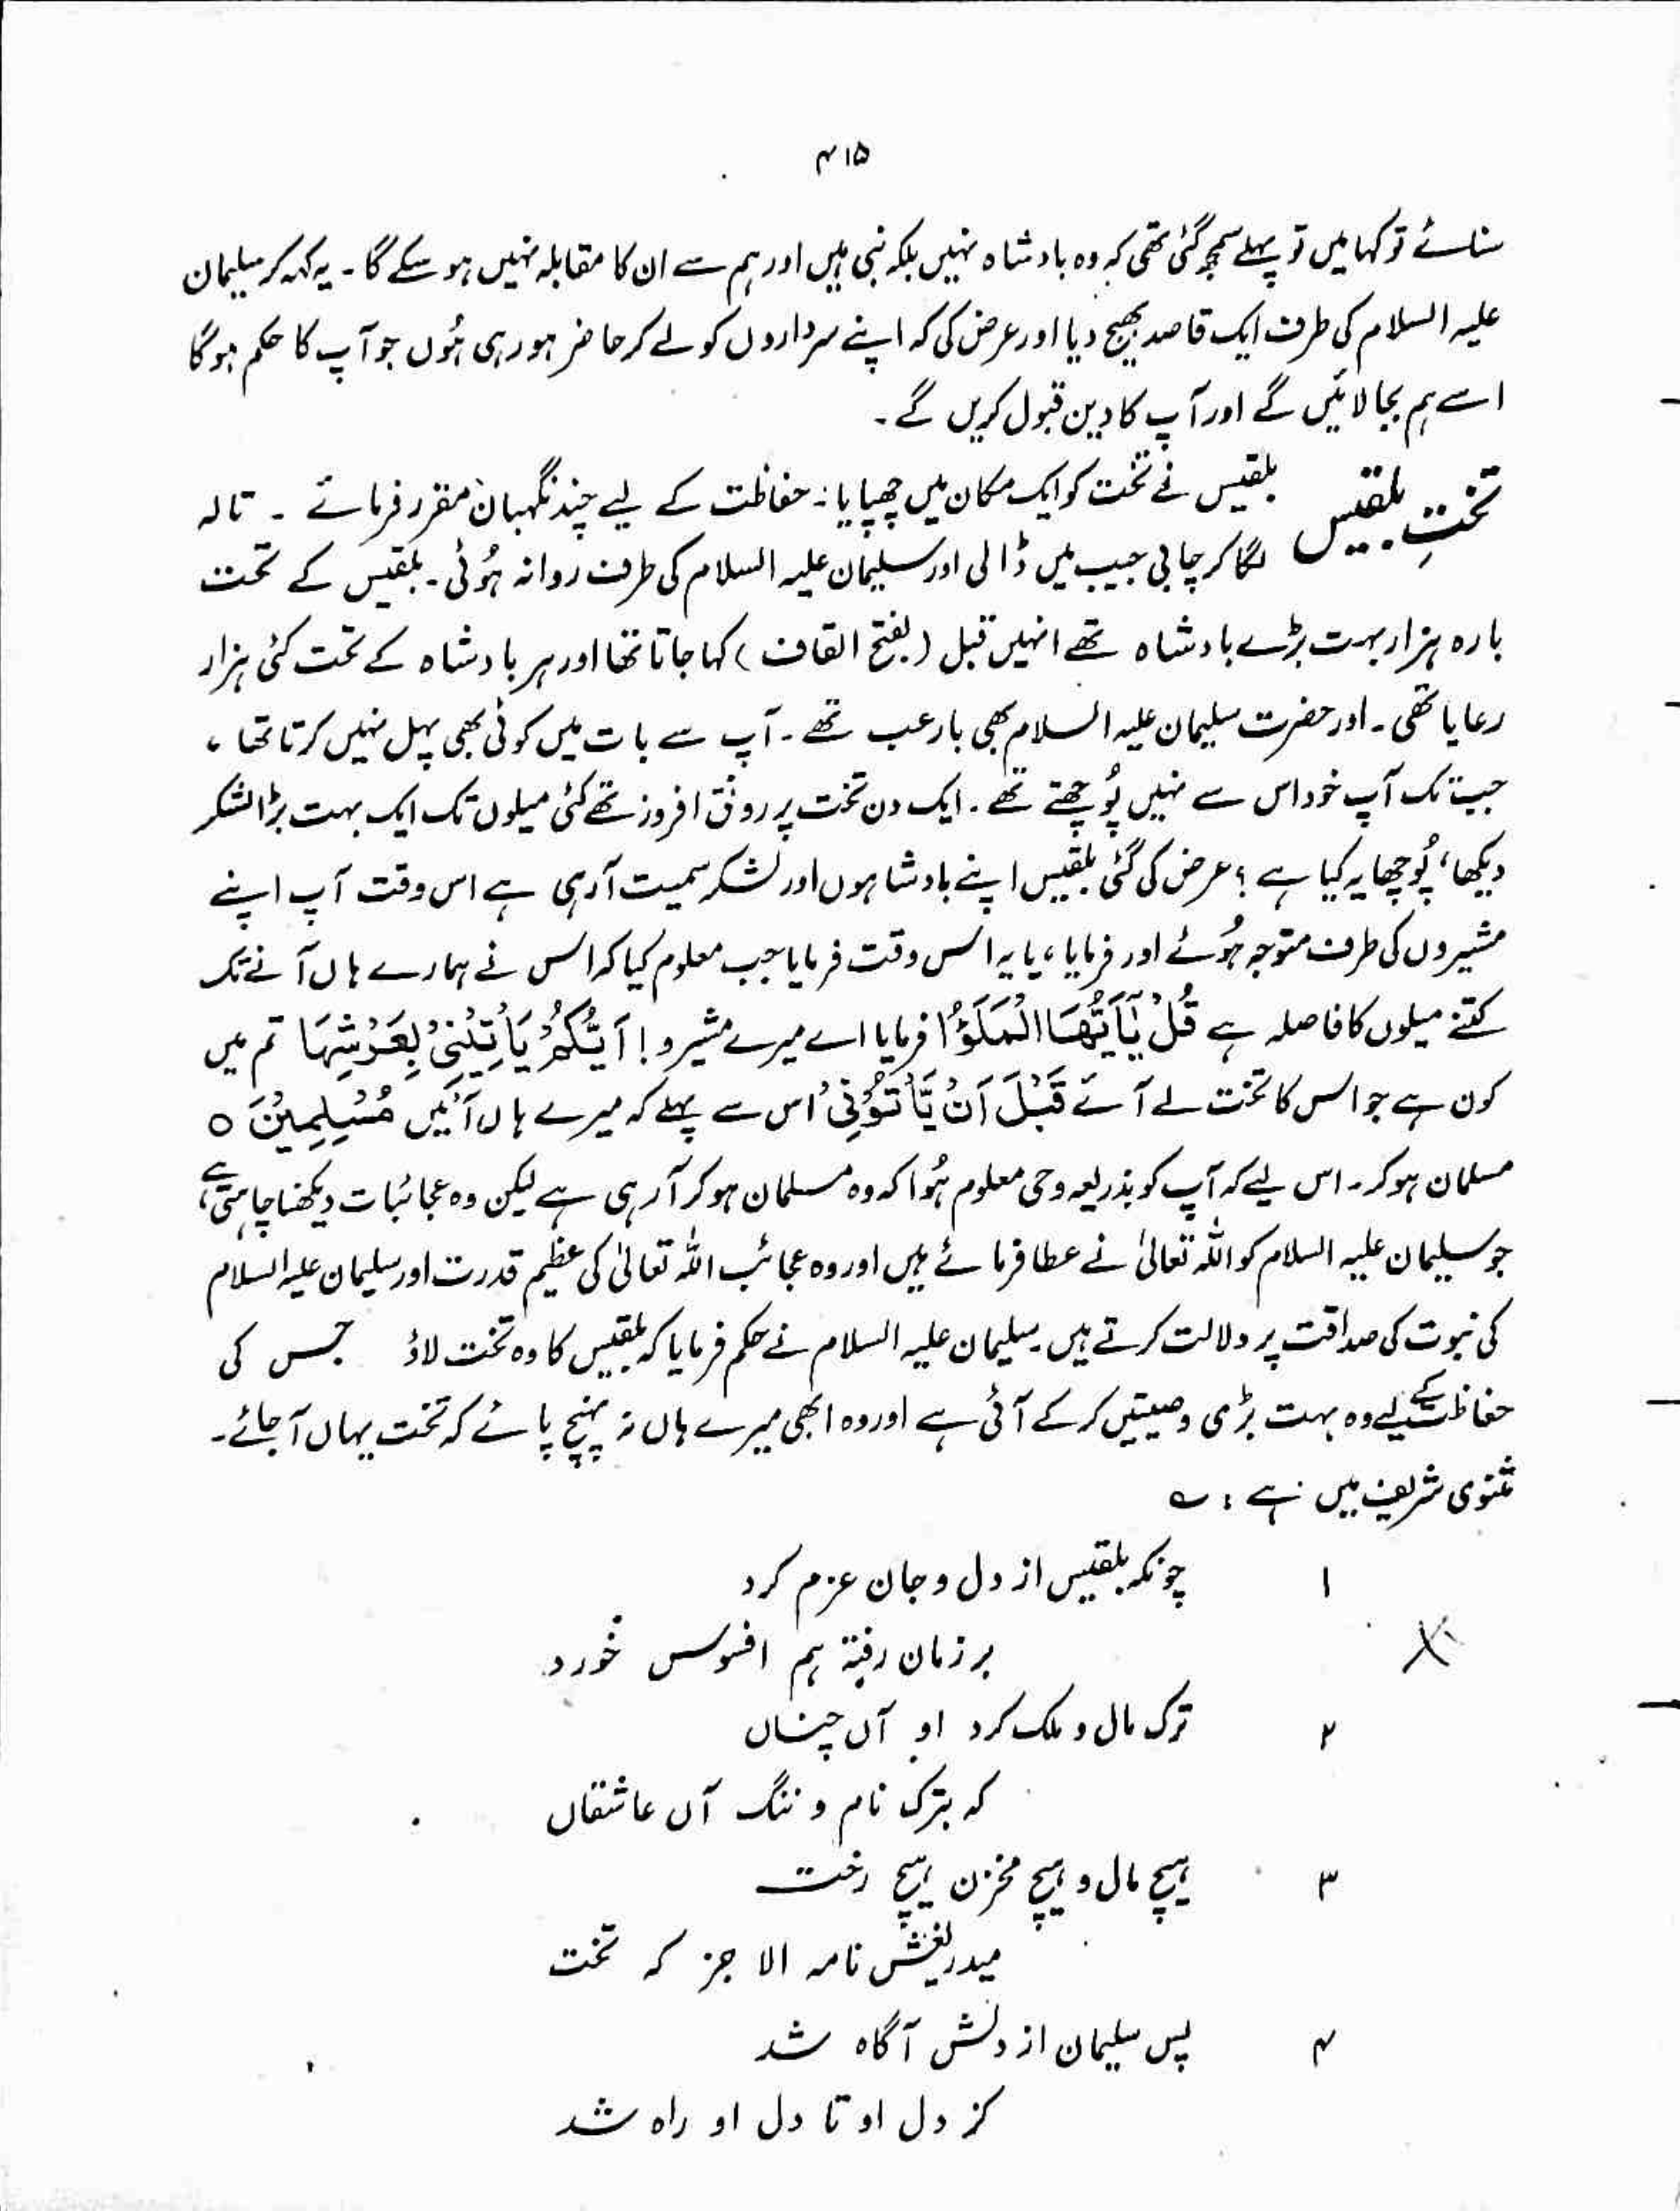 ۴۱۵
سنائے تو کہا میں تو پہلے سمجھ گئی تھی کہ وہ بادشاہ نہیں بلکہ نبی ہیں اور ہم سے ان کا مقابلہ نہیں ہو سکے گا۔ یہ کہہ کر سلیمان
علیہ السلام کی طرف ایک قاصد بھیج دیا اور عرض کی کہ اپنے سرداروں کو لے کر حاضر ہو رہی ہُوں جو آپ کا حکم ہوگا
اسے ہم بجا لائیں گے اور آپ کا دین قبول کریں گے۔
تختِ بلقیس بلقیس نے تخت کو ایک مکان میں چھپایا۔ حفاظت کے لیے چند نگہبان مقرر فرمائے ۔ تالہ
لگا کر چابی جیب میں ڈالی اور سلیمان علیہ السلام کی طرف روانہ ہُوئی۔ بلقیس کے تحت
بارہ ہزار بہت بڑے بادشاہ تھے انہیں قبل (بفتح القاف) کہا جاتا تھا اور ہر بادشاہ کے تحت کئی ہزار
رعایا تھی۔ اور حضرت سلیمان علیہ السلام بھی بارعب تھے۔ آپ سے بات میں کوئی بھی پہل نہیں کرتا تھا ،
جبتک آپ خود اس سے نہیں پُوچھتے تھے۔ ایک دن تخت پر رونق افروز تھے کئی میلوں تک ایک بہت بڑا لشکر
دیکھا، پُوچھا یہ کیا ہے ؟ عرض کی گئی بلقیس اپنے بادشاہوں اور لشکر سمیت آ رہی ہے اس وقت آپ اپنے
مشیروں کی طرف متوجہ ہُوئے اور فرمایا، یا یہ اس وقت فرمایا جب معلوم کیا کہ اس نے ہمارے ہاں آنے تک
کتنے میلوں کا فاصلہ ہے قُلْ یٰٓاَیُّهَا الْمَلَؤُا فرمایا اے میرے مشیرو! اَیُّكُمْ یَاْتِیْنِیْ بِعَرْشِهَا تم میں
کون ہے جو اس کا تخت لے آئے قَبْلَ اَنْ یَّاْتُوْنِیْ اس سے پہلے کہ میرے ہاں آئیں مُسْلِمِیْنَ ○
مسلمان ہو کر۔ اس لیے کہ آپ کو بذریعہ وحی معلوم ہُوا کہ وہ مسلمان ہو کر آ رہی ہے لیکن وہ عجائبات دیکھنا چاہتی ہے،
جو سلیمان علیہ السلام کو اللہ تعالیٰ نے عطا فرمائے ہیں اور وہ عجائب اللہ تعالیٰ کی عظیم قدرت اور سلیمان علیہ السلام
کی نبوت کی صداقت پر دلالت کرتے ہیں۔ سلیمان علیہ السلام نے حکم فرمایا کہ بلقیس کا وہ تخت لاؤ جس کی
حفاظت کے لیے وہ بہت بڑی وصیتیں کر کے آئی ہے اور وہ ابھی میرے ہاں نہ پہنچ پائے کہ تخت یہاں آجائے۔
مثنوی شریف میں ہے : ؎
۱ چونکہ بلقیس از دل و جان عزم کرد
بر زمان رفتہ ہم افسوس خُورد
۲ ترک مال و ملک کرد او آں چناں
کہ بترک نام و ننگ آں عاشقاں
۳ ہیچ مال و ہیچ مخزن ہیچ رخت
میدریغش نامہ الا جز کہ تخت
۴ پس سلیمان از دلش آگاہ شد
کز دل او تا دل او راہ شد